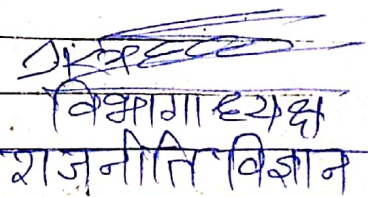 विभागाध्यक्ष
राजनीति विज्ञान